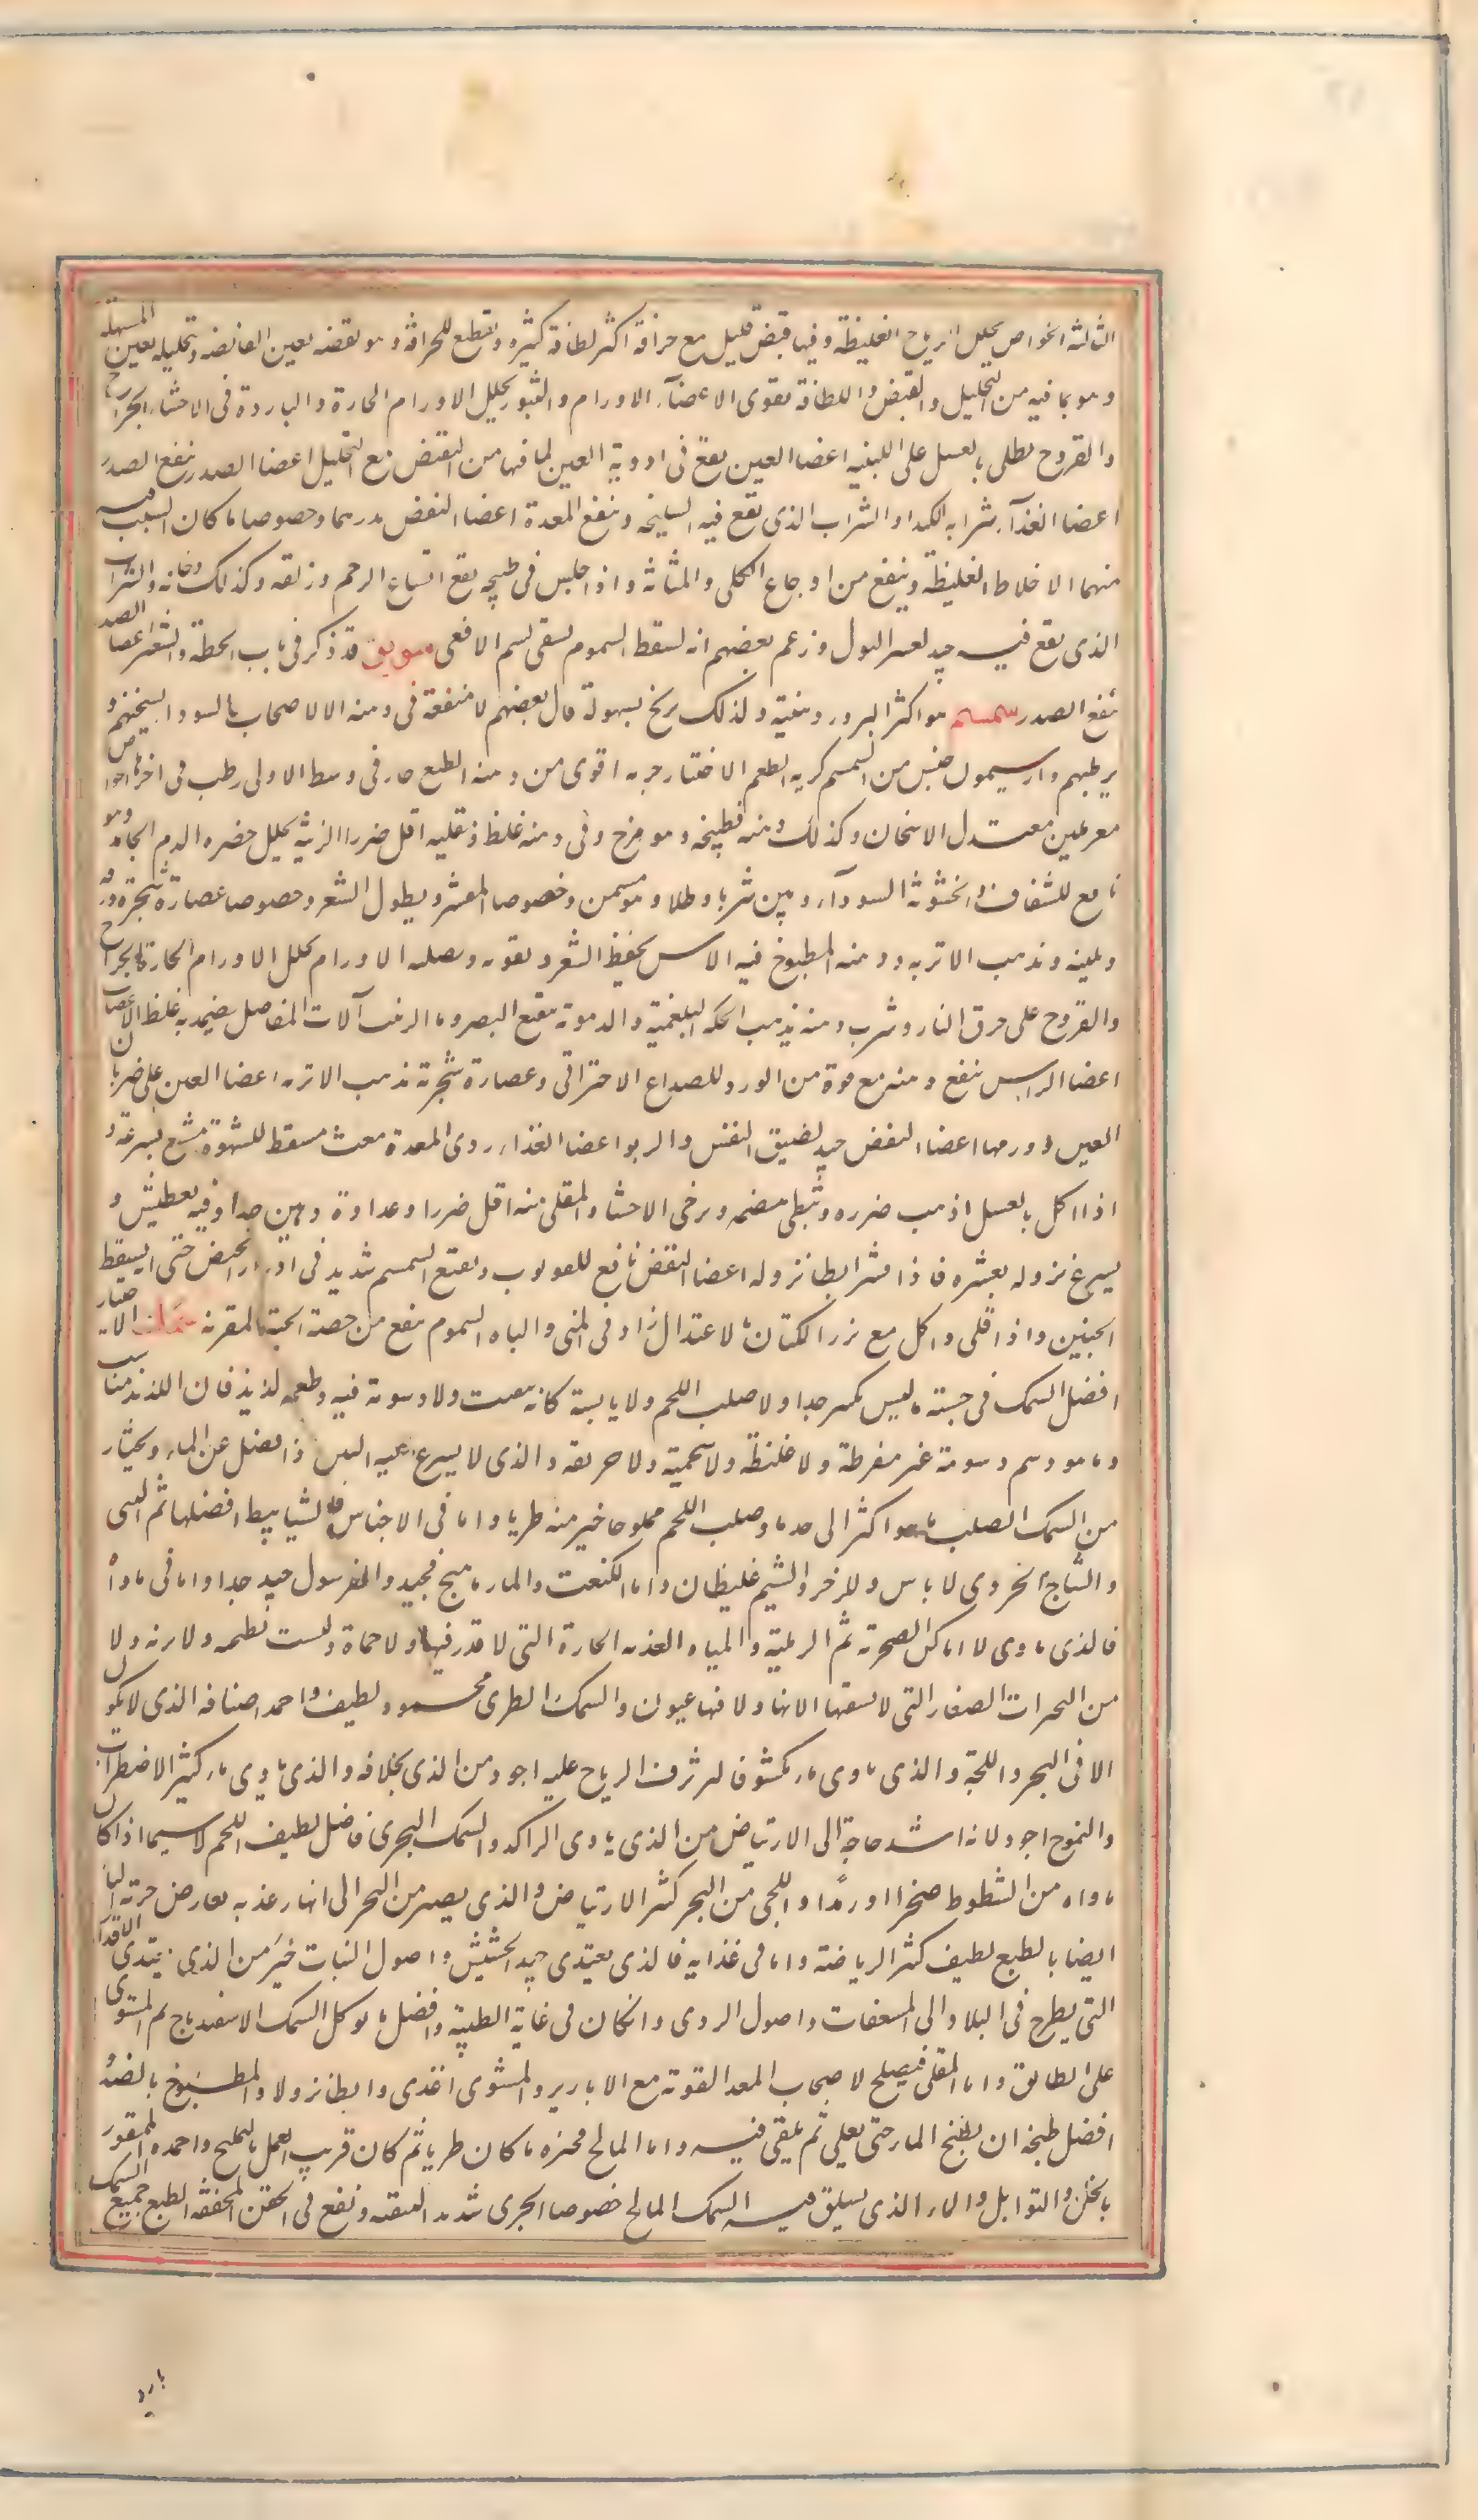 الثالثة الخواص يحلل الرياح الغليظة وفيها قبض قليل مع حرافة اكثر لطافة كثيره ويقطع للحرافة و هو بقضه يعين القابضه و تحليله يعين المسهلة
و هو بما فيه من التحليل والقبض واللطافة يقوى الاعضآء الاورام والبثور يحلل الاورام الحارة والباردة فى الاحشاء الجراح
والقروح يطلى بالعسل على اللبنيه اعضا العين يقع فى ادوية العين لما فيها من القبض مع التحليل اعضا الصدر ينفع الصدر
اعضا الغذآء شرابه الكبد او الشراب الذى يقع فيه السليخه و ينفع المعدة اعضا النفض يدرهما وخصوصا ما كان السبب فيه
منهما الاخلاط الغليظة وينفع من اوجاع الكلى والمثانة واذا جلس فى طبيخه نفع اتساع الرحم وزلقه وكذلك دخانه والشراب
الذى يقع فيه جيد لعسر البول وزعم بعضهم انه يسقط السموم يسقى لسم الافعى سويق قد ذكر فى باب الحنطة والشعير اعضا الصدر
ينفع الصدر سمسم هو اكثر البزور دهنية ولذلك يزنخ بسهولة قال بعضهم لا منفعة فى دهنه الا لاصحاب السودا يسخنهم و
يرطبهم وارسيمون جنس من السمسم كريه الطعم الاختيار جرمه اقوى من دهنه الطبع حار فى وسط الاولى رطب فى اخرها الخواص
مغر ملين معتدل الاسخان وكذلك دهنه فطبيخه وهو مرخ وفى دهنه غلظ وقليه اقل ضررا الزينة يحلل خضرة الدم الجامد وهو
نافع للشقاق والخشونة السودآء وبين شربا وطلاء وهو مسمن وخصوصا المقشر ويطول الشعر وخصوصا عصارة شجرته وورقه
ويلينه ويذهب الاتربه ودهنه المطبوخ فيه الاس يحفظ الشعر ويقويه ويصلبه الاورام يحلل الاورام الحارة الجراح
والقروح على حرق النار وشرب دهنه يذهب الحكة البلغمية والدموية بنقع البصر وماء الزبيب آلات المفاصل يضمد به غلظ الاعصاب
اعضا الراس ينفع دهنه مع قوة من الورد للصداع الاحتراقى وعصارة شجرته تذهب الاتربه اعضا العين على ضربان
العين وورمها اعضاء النفض جيد لضيق النفس والربو اعضا الغذاء ردى المعدة مغث مسقط للشهوة مشبع بسرعة و
اذا اكل بالعسل اذهب ضرره و يبطى هضمه ويرخى الاحشاء والمقلى منه اقل ضررا وعداوة دهين جدا وفيه تعطيش و
يسرع نزوله بقشره فاذا قشر ابطا نزوله اعضا النفض نافع للقولون ونقيع السمسم شديد فى ادرار الحيض حتى يسقط
الجنين واذا قلى واكل مع بزر الكتان بالاعتدال زاد فى المنى والباه السموم ينفع من عضة الحية المقرنة سمك الاختيار
افضل السمك فى جثته ما ليس بكبير جدا ولا صلب اللحم ولا يابسة كانه يتفتت ولا دسومة فيه وطعمه لذيذ فان اللذيذ مناسب
وما هو دسم دسومة غير مفرطة ولا غليظة ولا شحمية ولا حريفه والذى لا يسرع اليه النتن اذا فصل عن الماء ويختار
من السمك الصلب ما هو اكثر الى حد ما وصلب اللحم مملوحا خير منه طريا واما فى الاجناس فالشبابيط افضلها ثم البنى
والبياح الجزورى لا باس والزجر والشيم غليظان واما الكنعت والمارماهيج فجيد والمفرسول جيد جدا واما فى ماوآه
فالذى ياوى الاماكن الصخرية ثم الرملية والمياه العذبه الجارية التى لا قذر فيها ولا حماة وليست بطيحه ولا نزه ولا
من البحيرات الصغار التى لا يسقها الانهار ولا فيها عيون والسمك الطرى محمود لطيف واحمد اصنافه الذى لا يكون
الا فى البحر واللجة والذى ياوى ماء مكشوفا ترفرف الرياح عليه اجود من الذى بخلافه والذى ياوى ماء كثير الاضطراب
والتموج اجود لانه اشد حاجة الى الارتياض من الذى ياوى الراكد والسمك البحرى فاضل لطيف اللحم لا سيما اذا كان
ماواه من الشطوط صخرا او رملا واللجى من البحر كثير الارتياض والذى يصير من البحر الى انهار عذبه يعارض جرية الماء
ايضا بالطبع لطيف كثير الرياضة واما فى غذايه فالذى يغتذى جيد الحشيش واصول النبات خير من الذى يغتذى الاقذار
التى يطرح فى البلاد الى المستنقعات واصول الردى وانكان فى غاية الطيبة وافضل ما يوكل السمك الاسفيدباج ثم المشوى
على الطابق واما المقلى فيصلح لاصحاب المعد القوية مع الابازير والمشوى اغذى وابطا نزولا والمطبوخ بالضد
افضل طبخه ان يطبخ الماء حتى يغلى ثم يلقى فيه واما المالح فخيره ما كان طريا ثم كان قريب العمل بالتمليح واحمده الممقور
بالخل والتوابل والماء الذى يسلق فيه السمك المالح خصوصا الجرى شديد التنقية وينفع فى الحقن المجففة الطبع جميع السمك
بارد